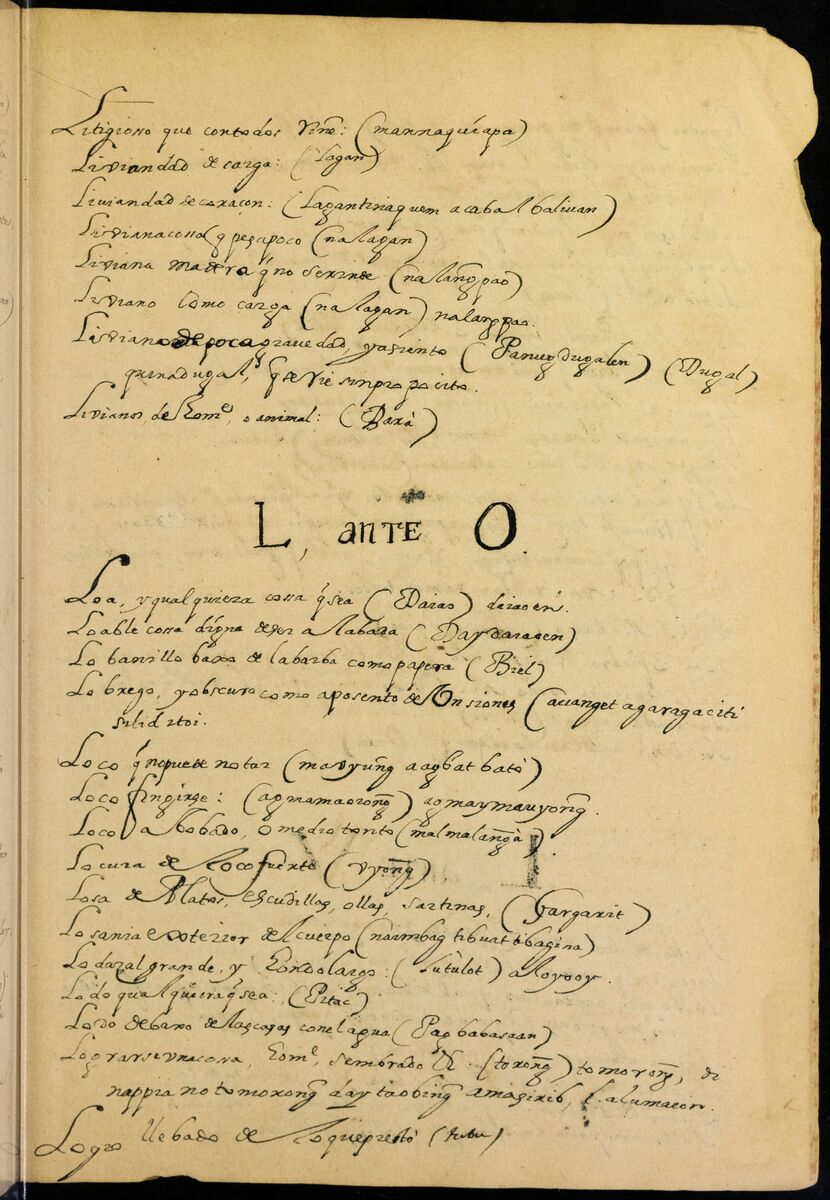 Litigiosso que contodos riñe: (mannaquiapa)
Liviandad de carga: (Lagan)
Liviandad de coraçon: (Lagantinaquem acabalbalivan)
Liviana cossa q̃ pesapoco (nalagan)
Liviana madera q̃ no serinde (nalang̃pao)
Liviano como carga (nalagan) nalangpao.
Liviano de poca gravedad, yasiento (Panuegdugalen) (Dugal)
quinadugal, q̃ se rie sin proposito.
Livianos de homᵉ, o animal: (Bará)
L, ante O
Loa, y qualquiera cossa q̃ sea (Daiao) daiaoen.
Loable cossa digna de ser alabada (Daydaiaoen)
Lobanillo baxo de la barba como papera (Biel)
Lobrego, y obscuro como aposento de (auanget agaragaciti
siliditoi.
Loco q̃ no puede notar (mavyung̃ aagbatbató)
Loco fingirse: (agmamaorong̃) agmaymauyong̃.
Loco abobado, o medio tonto (malmalang̃à)
Locura de loco fuerte (vyong̃)
Losa de Platos, escudillas, ollas, sartinas, (Gargarit)
Losania exterior del cuerpo (naimbag tibuat tibagina)
Lodazal grande, y hondo largo: (Lutulot) aloyooy.
Lodo qualquiera q̃ sea: (Pitac)
Lodo debaxo de las casas con el agua (Pagbabasaan)
Lograrse una cossa, homᵉ, sembrado & (torong̃) tomorong̃, di
nappia no tomorong̃ díay taobing̃ amagirib, l. alumaeon.
Logro llebado de lo que prestó (tubu)